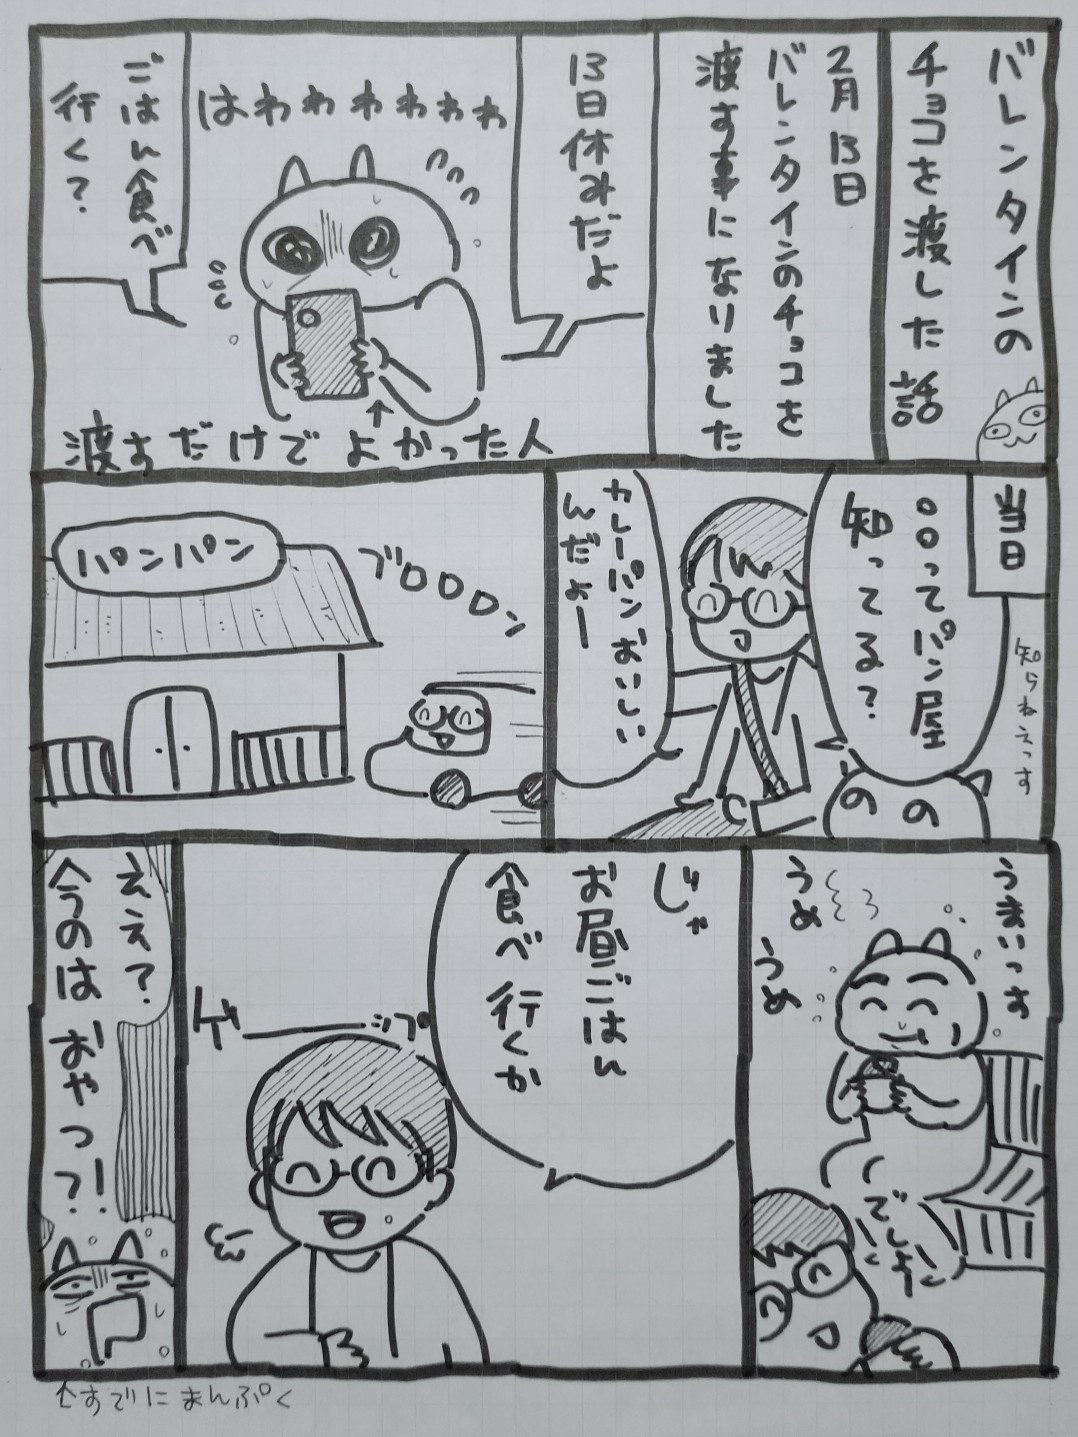 バレンタインの
チョコを渡した話
2月13日
バレンタインのチョコを
渡す事になりました
13日休みだよ
はわわわわわわ
ごはん食べ
行く?
↑
渡すだけでよかった人
当日
〇〇ってパン屋
知ってる?
知らねえっす
カレーパンおいしい
んだよー
ブロロロン
パンパン
うまいっす
うめ
うめ
でしょ
じゃ
お昼ごはん
食べ行くか
ゲーーップ
ええ?
今のはおやつ?!
↑すでにまんぷく